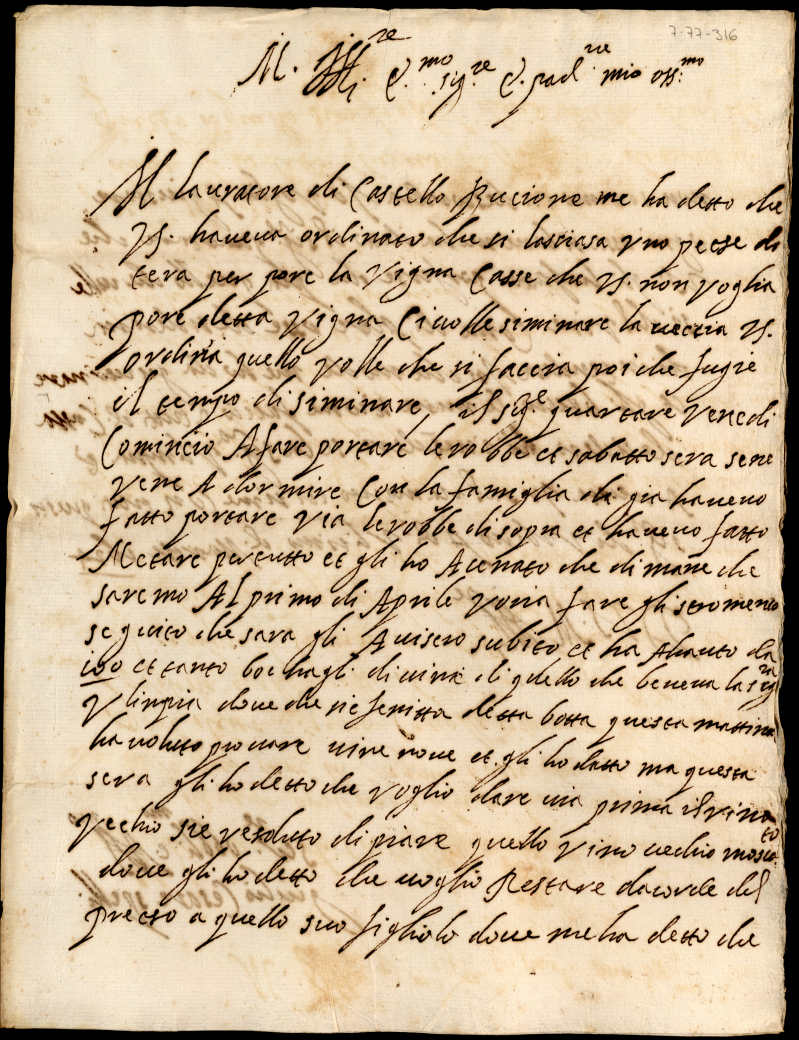 7-77-316
M. Ill.re et mo sig.re et pad.ne mio oss.mo
Il lauratore di Castello Buccione me ha detto che
VS. haveva ordinato che si lasciasa uno pecse di
tera per pore la vigna Casse che VS. non voglia
pore detta vigna Ci volle siminare la veccia VS.
ordina quello volle che si faccia poi che fugie
il tempo di siminare, il sig.re quartare Venedi
Comincio A fare portare le robbe et sabatto sera sene
vene A dormire Con la famiglia di gia havevo
fatto portare via le robbe di sopra et havevo fatto
Netare per tutto et gli ho Acenato che di mane che
saremo Al primo di Aprile vora fare gli stromento
seguito che sara gli Avisero subito et ha Ahauto da
ivo et tanto bochagli di vino di quello che beveva la sig.ra
Vlinpia dove che sie fenitta detta botta questa mattina
ha voluto provare vine nove et gli ho datto ma questa
sera gli ho detto che voglio dare via prima il vino
vechio sie resoluto di piare quello vino vechio moscato
dove gli ho detto che voglio Restare dacorde del
precso a quello suo figliolo dove me ha detto che